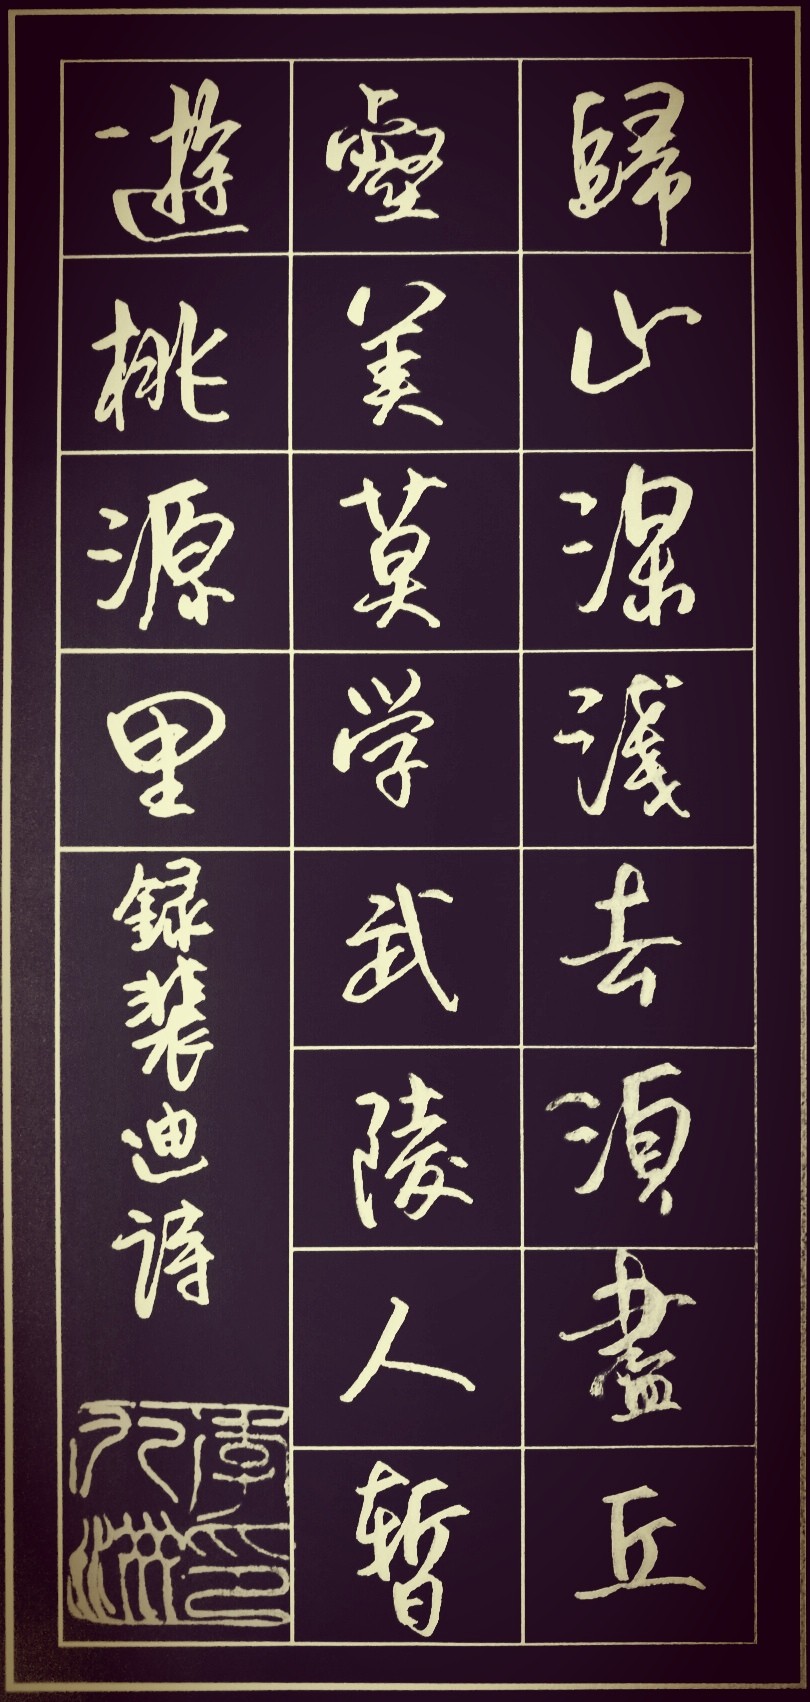 歸山深淺去須盡丘
壑美莫学武陵人暫
遊桃源里
録裴迪詩